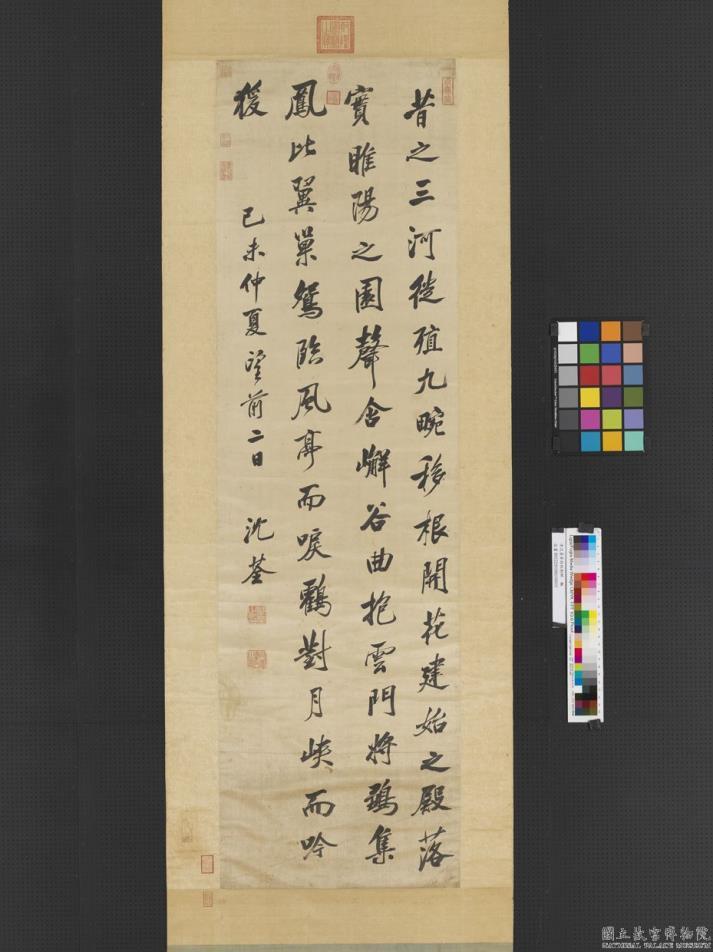 昔之三河徙殖九畹移根開花建始之殿落
實睢陽之園聲含嶰谷曲抱雲門將鶵集
鳳比翼巢鴛臨風亭而唳鶴對月峽而吟
猨
己未仲夏望前二日 沈荃
國立故宮博物院
NATIONAL PALACE MUSEUM